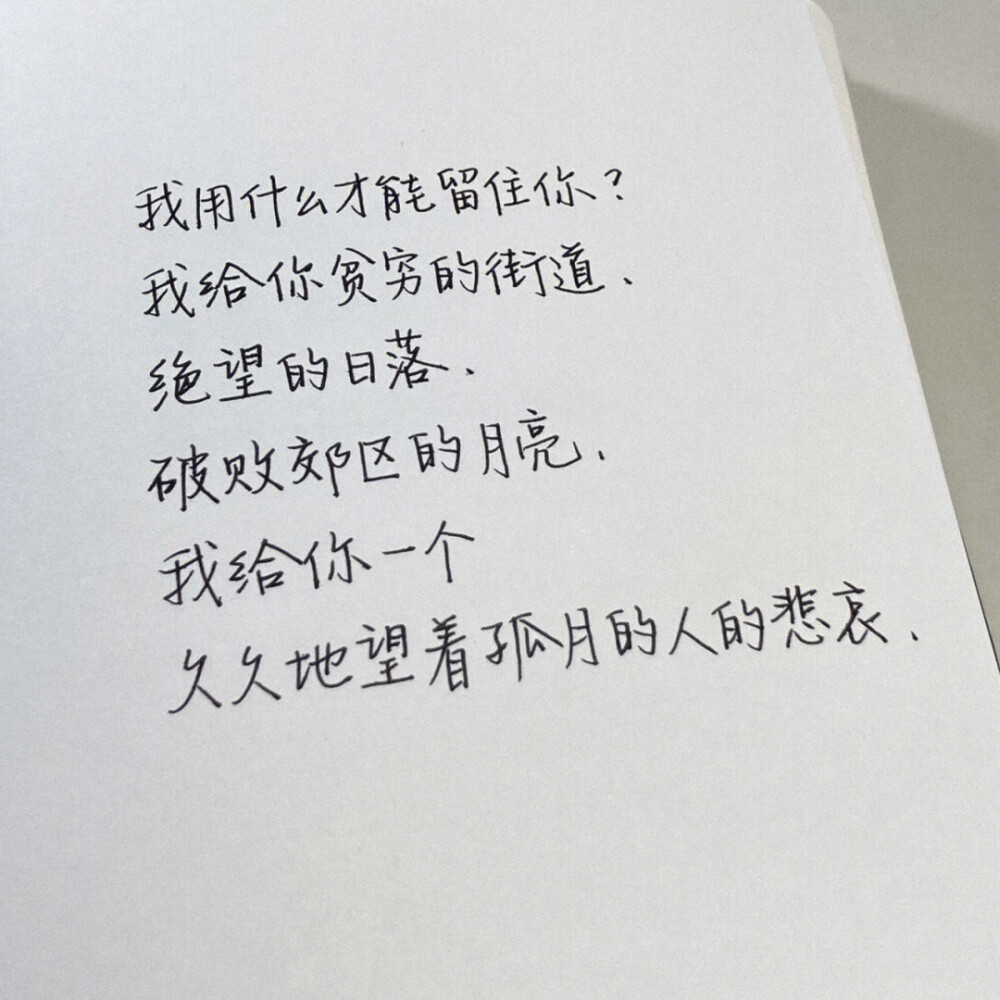 我用什么才能留住你?
我给你贫穷的街道、
绝望的日落、
破败郊区的月亮、
我给你一个
久久地望着孤月的人的悲哀、